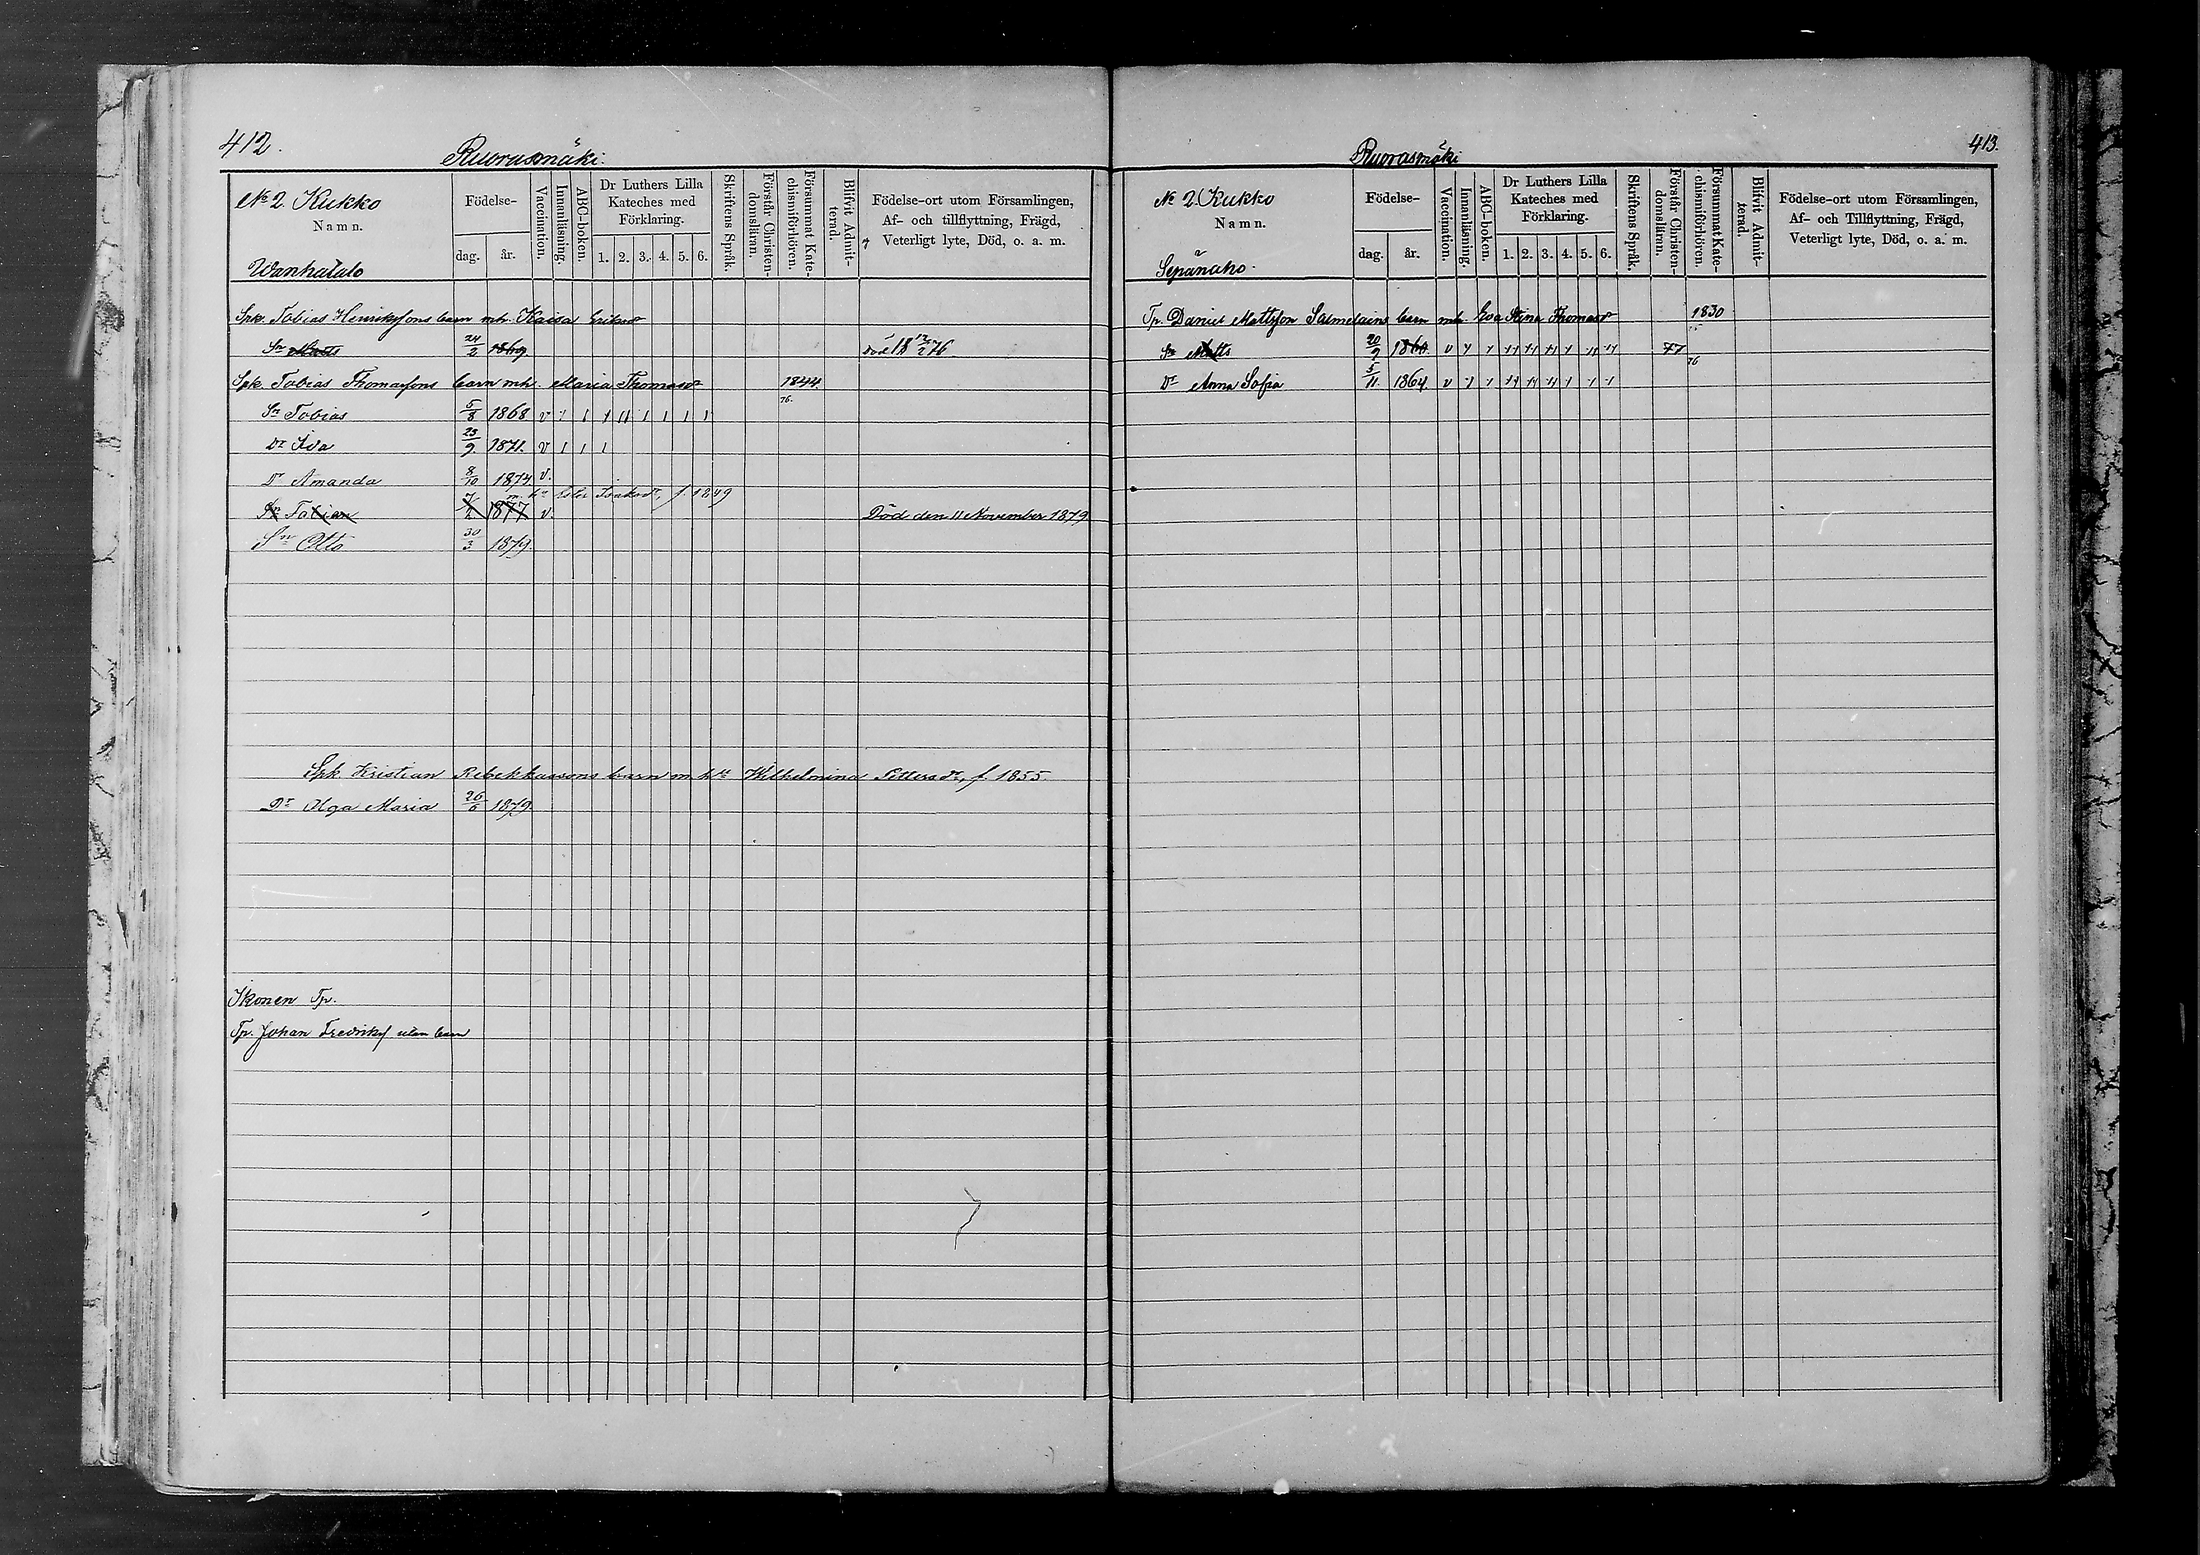 412.
Ruorasmäki.
No 2 Kukko
Namn.
Wanhatalo
Födelse-
dag.
år.
Vaccination.
Innanläsning.
ABC-boken.
Dr Luthers Lilla
Kateches med
Förklaring.
1. 2. 3. 4. 5. 6.
Skriftens Språk.
Förstår Christen-
domsläran.
Försummat Kate-
chismiförhören.
Blifvit Admit-
terad.
Födelse-ort utom Församlingen,
Af- och tillflyttning, Frägd,
Veterligt lyte, Död, o. a. m.
Spk. Tobias Henrikssons barn mh. Kaisa Eriksdr
Sn Matts 24/2 1869 död 18 76
Spk. Tobias Thomassons barn mh. Maria Thomasdr 1844
76.
Sn Tobias 5/8 1868 v
Dr Ida 23/9 1871. v
Dr Amanda 8/10 1874 v.
m. hu Isaksdr, f. 1849
Sn Tobias 1877 v. Död den 11 November 1879
Sn Otto 30/3 1879
Spk Kristian Rebekkassons barn m. hu Wilhelmina Pettersdr, f 1855
Dr Olga Maria 26/6 1879
Ikonen Tp.
Tp. Johan Fredriks utan barn
413.
Ruorasmäki
No 2 Kukko
Namn.
Sepänaho.
Födelse-
dag.
år.
Vaccination.
Innanläsning.
ABC-boken.
Dr Luthers Lilla
Kateches med
Förklaring.
1. 2. 3. 4. 5. 6.
Skriftens Språk.
Förstår Christen-
domsläran.
Försummat Kate-
chismiförhören.
Blifvit Admit-
terad.
Födelse-ort utom Församlingen,
Af- och Tillflyttning, Frägd,
Veterligt lyte, Död, o. a. m.
Tp. Daniel Mattsson Salmelains barn mh. Eva Stina Thomasdr 1830
Sn Matts 20/9 1860 v 77
76
Dr Anna Sofia 5/11. 1864 v